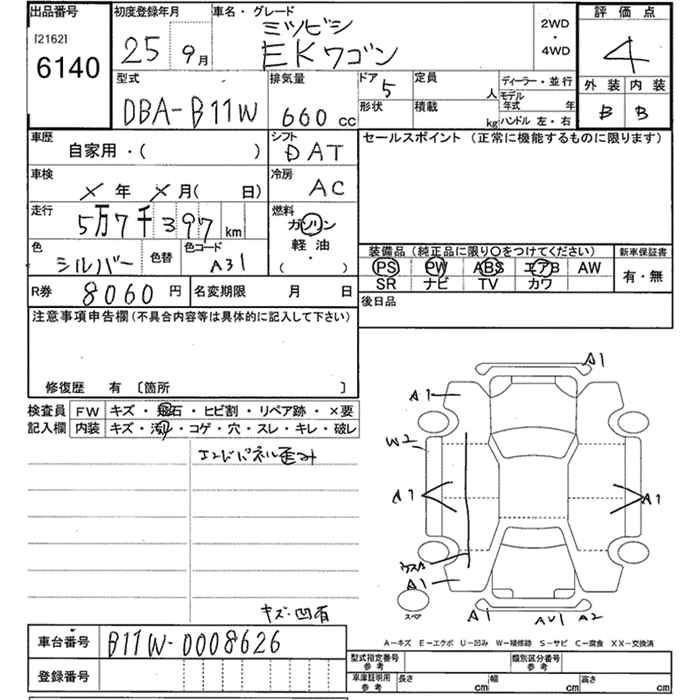 出品番号
[2162]
6140
初度登録年月
25 9月
車名・グレード
ミツビシ
EKワゴン
2WD
・
4WD
評価点
4
外装 内装
B B
型式
DBA-B11W
排気量
660 cc
ドア 5
形状
定員 人
積載 kg
ディーラー・並行
モデル年式 年
ハンドル 左・右
車歴
自家用・( )
シフト
DAT
セールスポイント (正常に機能するものに限ります)
車検
× 年 × 月( 日)
冷房
AC
走行
5万7千397 km
燃料
ガソリン
軽油
・
( )
色
シルバー
色替
色コード
A31
装備品 (純正品に限り○をつけてください)
PS PW ABS エアB AW
SR ナビ TV カワ
新車保証書
有・無
R券 8060 円
名変期限 月 日
後日品
注意事項申告欄 (不具合内容等は具体的に記入して下さい)
修復歴 有 [箇所 ]
検査員 FW キズ・飛石・ヒビ割・リペア跡・×要
記入欄 内装 キズ・汚レ・コゲ・穴・スレ・キレ・破レ
エンドパネル歪み
キズ・凹有
A1
A1
W2
A1
A1
ウスA
A1
スペア
A1 AU1 A2
A-キズ E-エクボ U-凹み W-補修跡 S-サビ C-腐食 XX-交換済
車台番号 B11W-0008626
登録番号
型式指定番号 参考
類別区分番号 参考
車庫証明用 参考
長さ cm 幅 cm 高さ cm